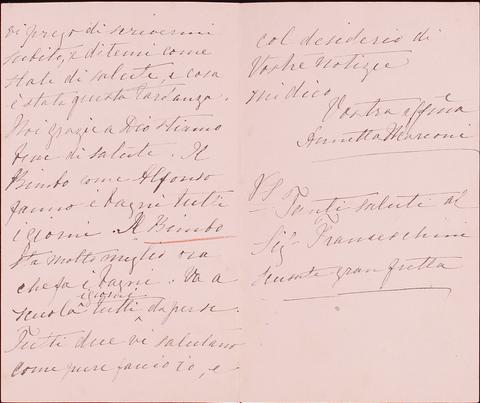 vi prego di scrivermi
subito, e ditemi come
state di salute, e cosa
è stata questa tardanza.
Noi grazie a Dio stiamo
bene di salute. Il
Bimbo come Alfonso
fanno i bagni tutti
i giorni. Il Bimbo
sta molto meglio ora
che fa i bagni. Va a
scuola tutti i giorni da per se.
Tutti due vi salutano
come pure faccio io, e
col desiderio di
Vostre Notizie
mi dico
Vostra affma
Annetta Marconi
PS Tanti saluti al
Sigr Franceschini
scusate gran fretta